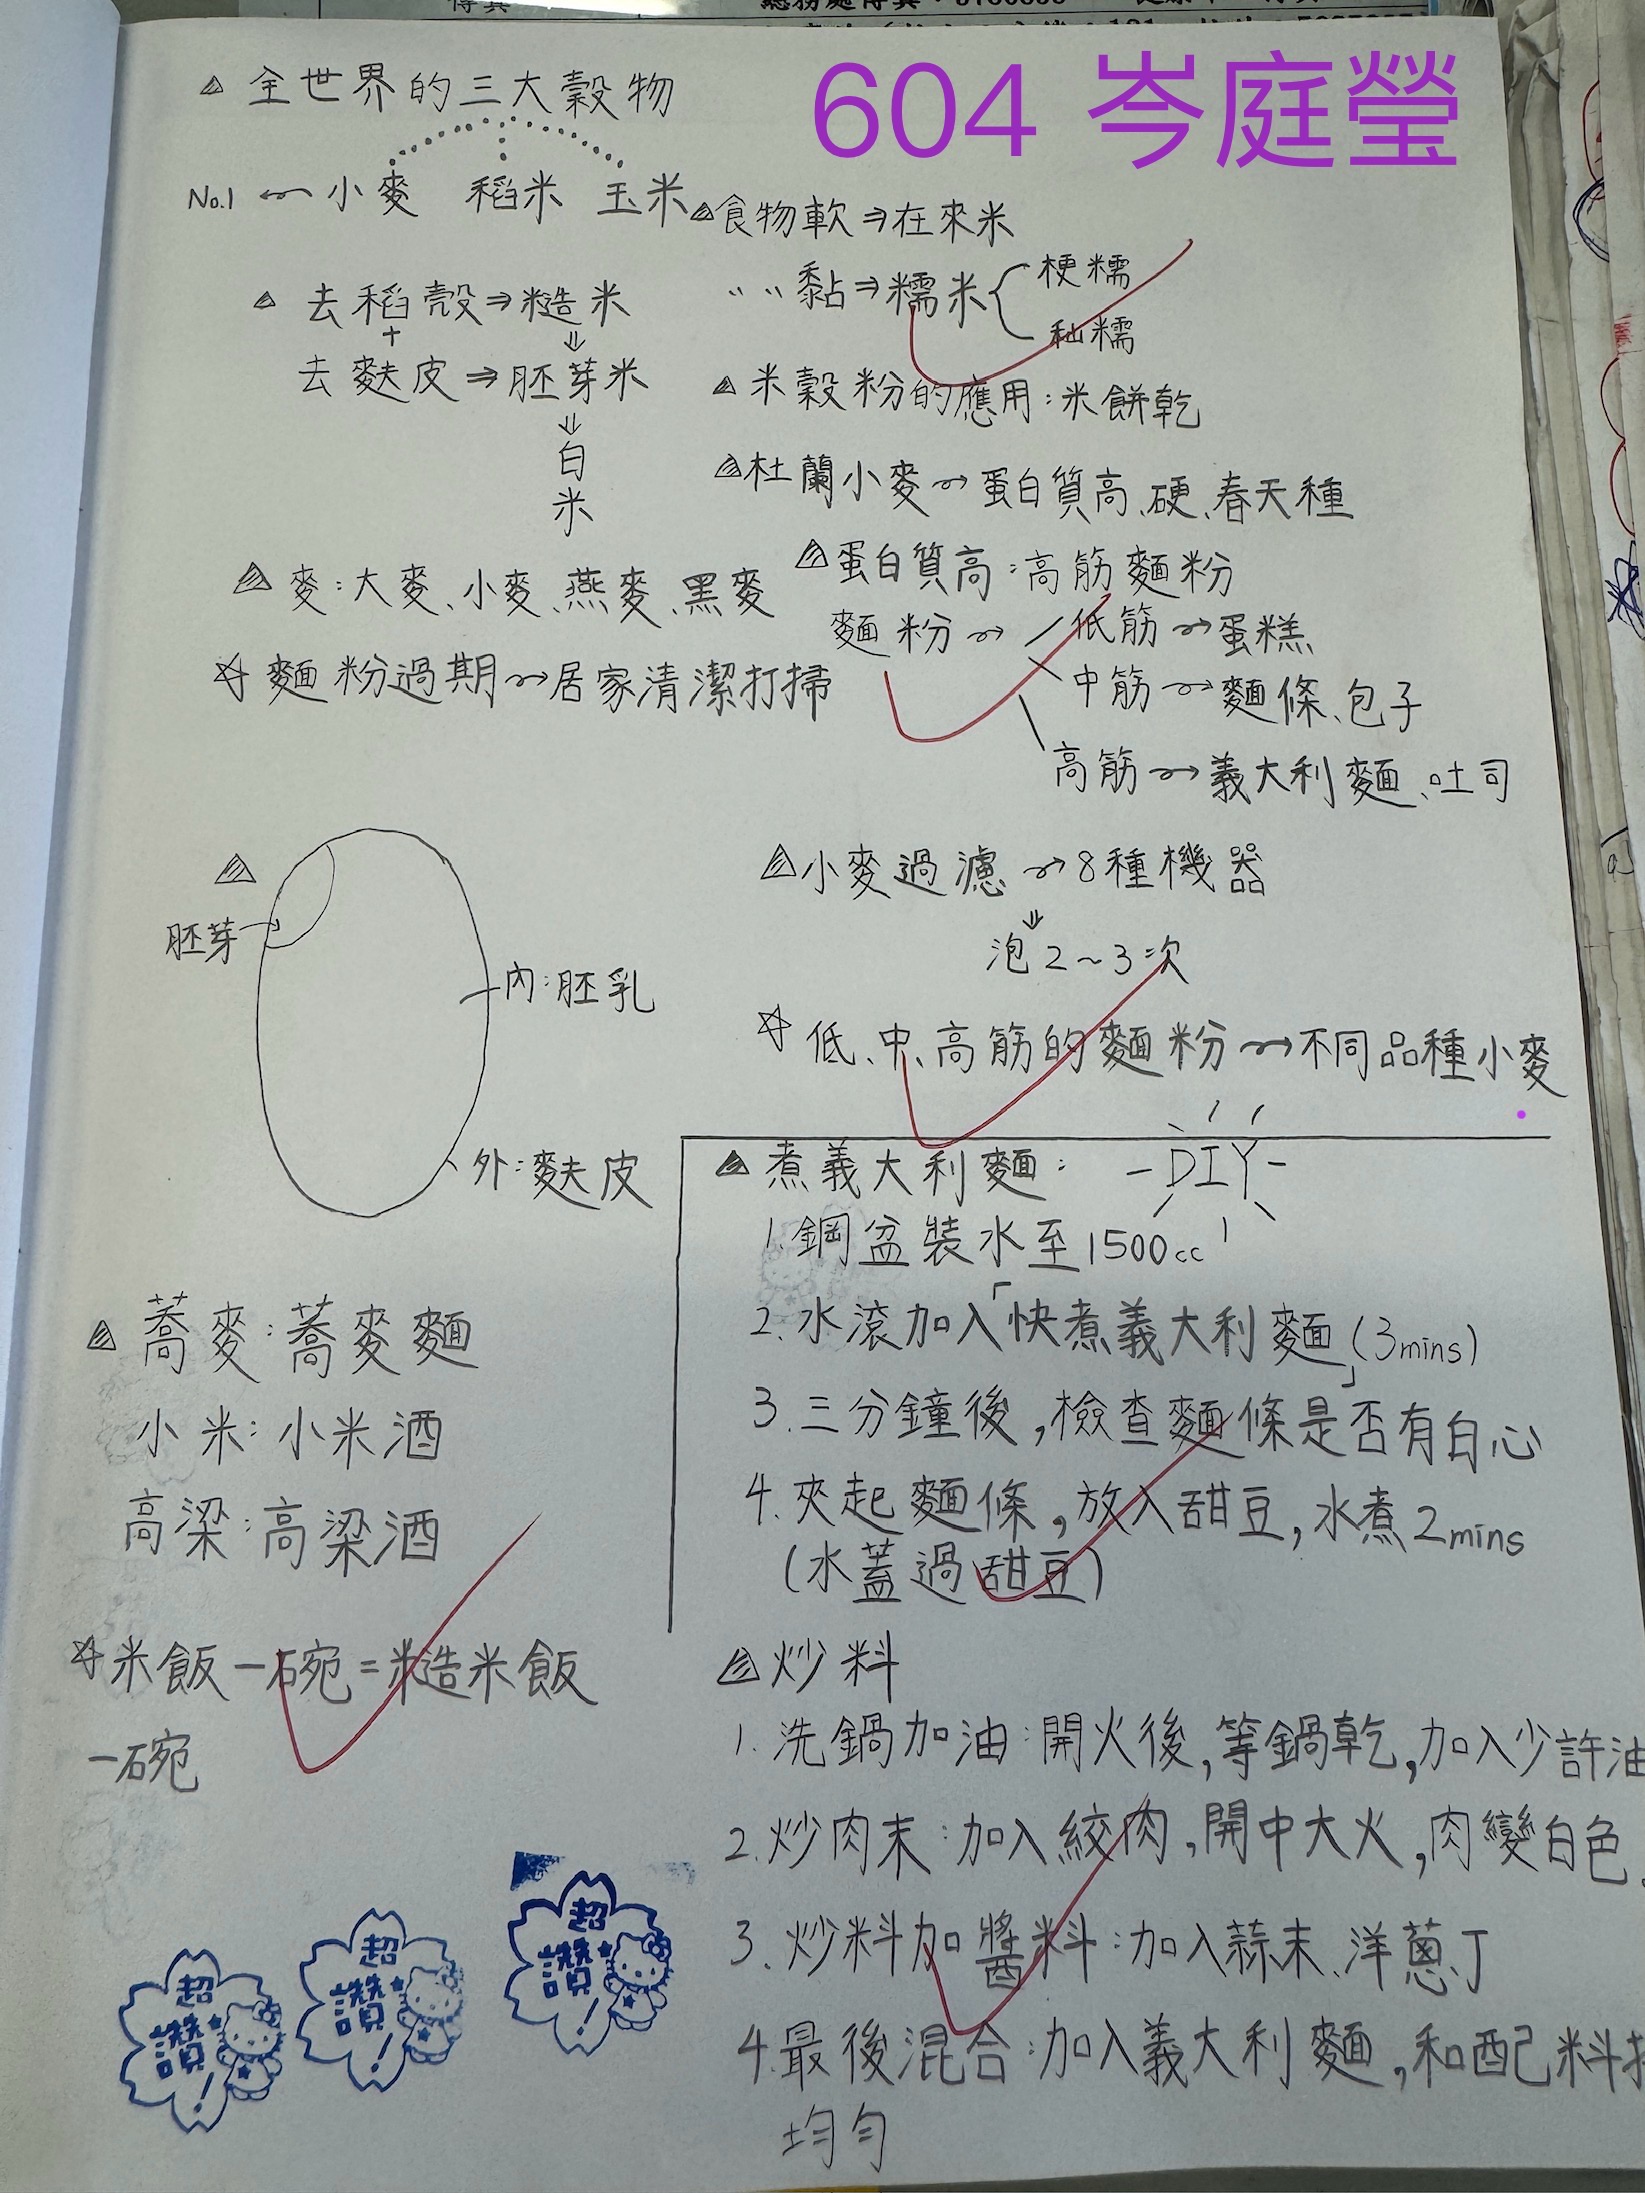 604 岑庭瑩
全世界的三大穀物
No.1 ← 小麥 稻米 玉米
去稻殼⇒糙米
+ ⇓
去麩皮⇒胚芽米
⇓
白米
麥:大麥、小麥、燕麥、黑麥
☆麵粉過期→居家清潔打掃
胚芽
內:胚乳
外:麩皮
蕎麥:蕎麥麵
小米:小米酒
高梁:高梁酒
☆米飯一碗=糙米飯
一碗
超讚!
超讚!
超讚!
食物軟⇒在來米
〃〃黏⇒糯米
梗糯
秈糯
米穀粉的應用:米餅乾
杜蘭小麥→蛋白質高、硬、春天種
蛋白質高:高筋麵粉
麵粉→低筋→蛋糕
中筋→麵條、包子
高筋→義大利麵、吐司
小麥過濾→8種機器
⇓
泡2~3次
☆低、中、高筋的麵粉→不同品種小麥
煮義大利麵: -DIY-
1.鋼盆裝水至1500cc
2.水滾加入「快煮義大利麵」(3mins)
3.三分鐘後,檢查麵條是否有白心
4.夾起麵條,放入甜豆,水煮2mins
(水蓋過甜豆)
炒料
1.洗鍋加油:開火後,等鍋乾,加入少許油
2.炒肉末:加入絞肉,開中大火,肉變白色
3.炒料加醬料:加入蒜末、洋蔥丁
4.最後混合:加入義大利麵,和配料
均勻